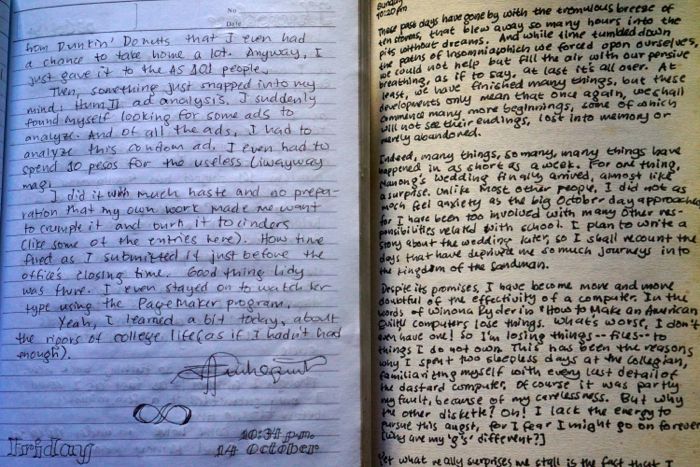 No
Date
from Dunkin' Donuts that I even had
a chance to take home a lot. Anyway, I
just gave it to the AS 101 people.
Then, something just snapped into my
mind: Hum II ad analysis. I suddenly
found myself looking for some ads to
analyze. And of all the ads, I had to
analyze this condom ad. I even had to
spend 10 pesos for the useless Liwayway
mag.
I did it with much haste and no prepa-
ration that my own work made me want
to crumple it and burn it to cinders
(like some of the entries here). How time
flied as I submitted it just before the
office's closing time. Good thing Lidy
was there. I even stayed on to watch her
type using the PageMaker program.
Yeah, I learned a bit today, about
the rigors of college life (as if I hadn't had
enough).
10:31 p.m.
Friday 14 October
Sunday
10:20 pm
These past days have gone by with the tremulous breeze of
ten storms, that blew away so many hours into the
pits without dreams. And while time tumbled down
the paths of insomnia which we forced upon ourselves,
we could not help but fill the air with our pensive
breathing, as if to say, at last it's all over. At
least, we have finished many things, but these
developments only mean that once again, we shall
commence many more beginnings, some of which
will not see their endings, lost into memory or
merely abandoned.
Indeed, many things, so many, many things have
happened in as short as a week. For one thing,
Manong's wedding finally arrived, almost like
a surprise. Unlike most other people, I did not as
much feel anxiety as the big October day approached
for I have been too involved with many other res-
ponsibilities related with school. I plan to write a
story about the wedding later, so I shall recount the
days that have deprived me so much journeys into
the kingdom of the Sandman.
Despite its promises, I have become more and more
doubtful of the effectivity of a computer. In the
words of Winona Ryder in "How to Make an American
Quilt," computers lose things. What's worse, I don't
even have one! So I'm losing things -- files -- to
things I do not own. This has been the reasons
why I spent two sleepless days at the Collegian,
familiarizing myself with every last detail of
the dastard computer. Of course it was partly
my fault, because of my carelessness. But why
the other diskette? Oh! I lack the energy to
pursue this angst, for I fear I might go on forever
[Why are my 'g's' different?]
Yet what really surprises me still is the fact that I